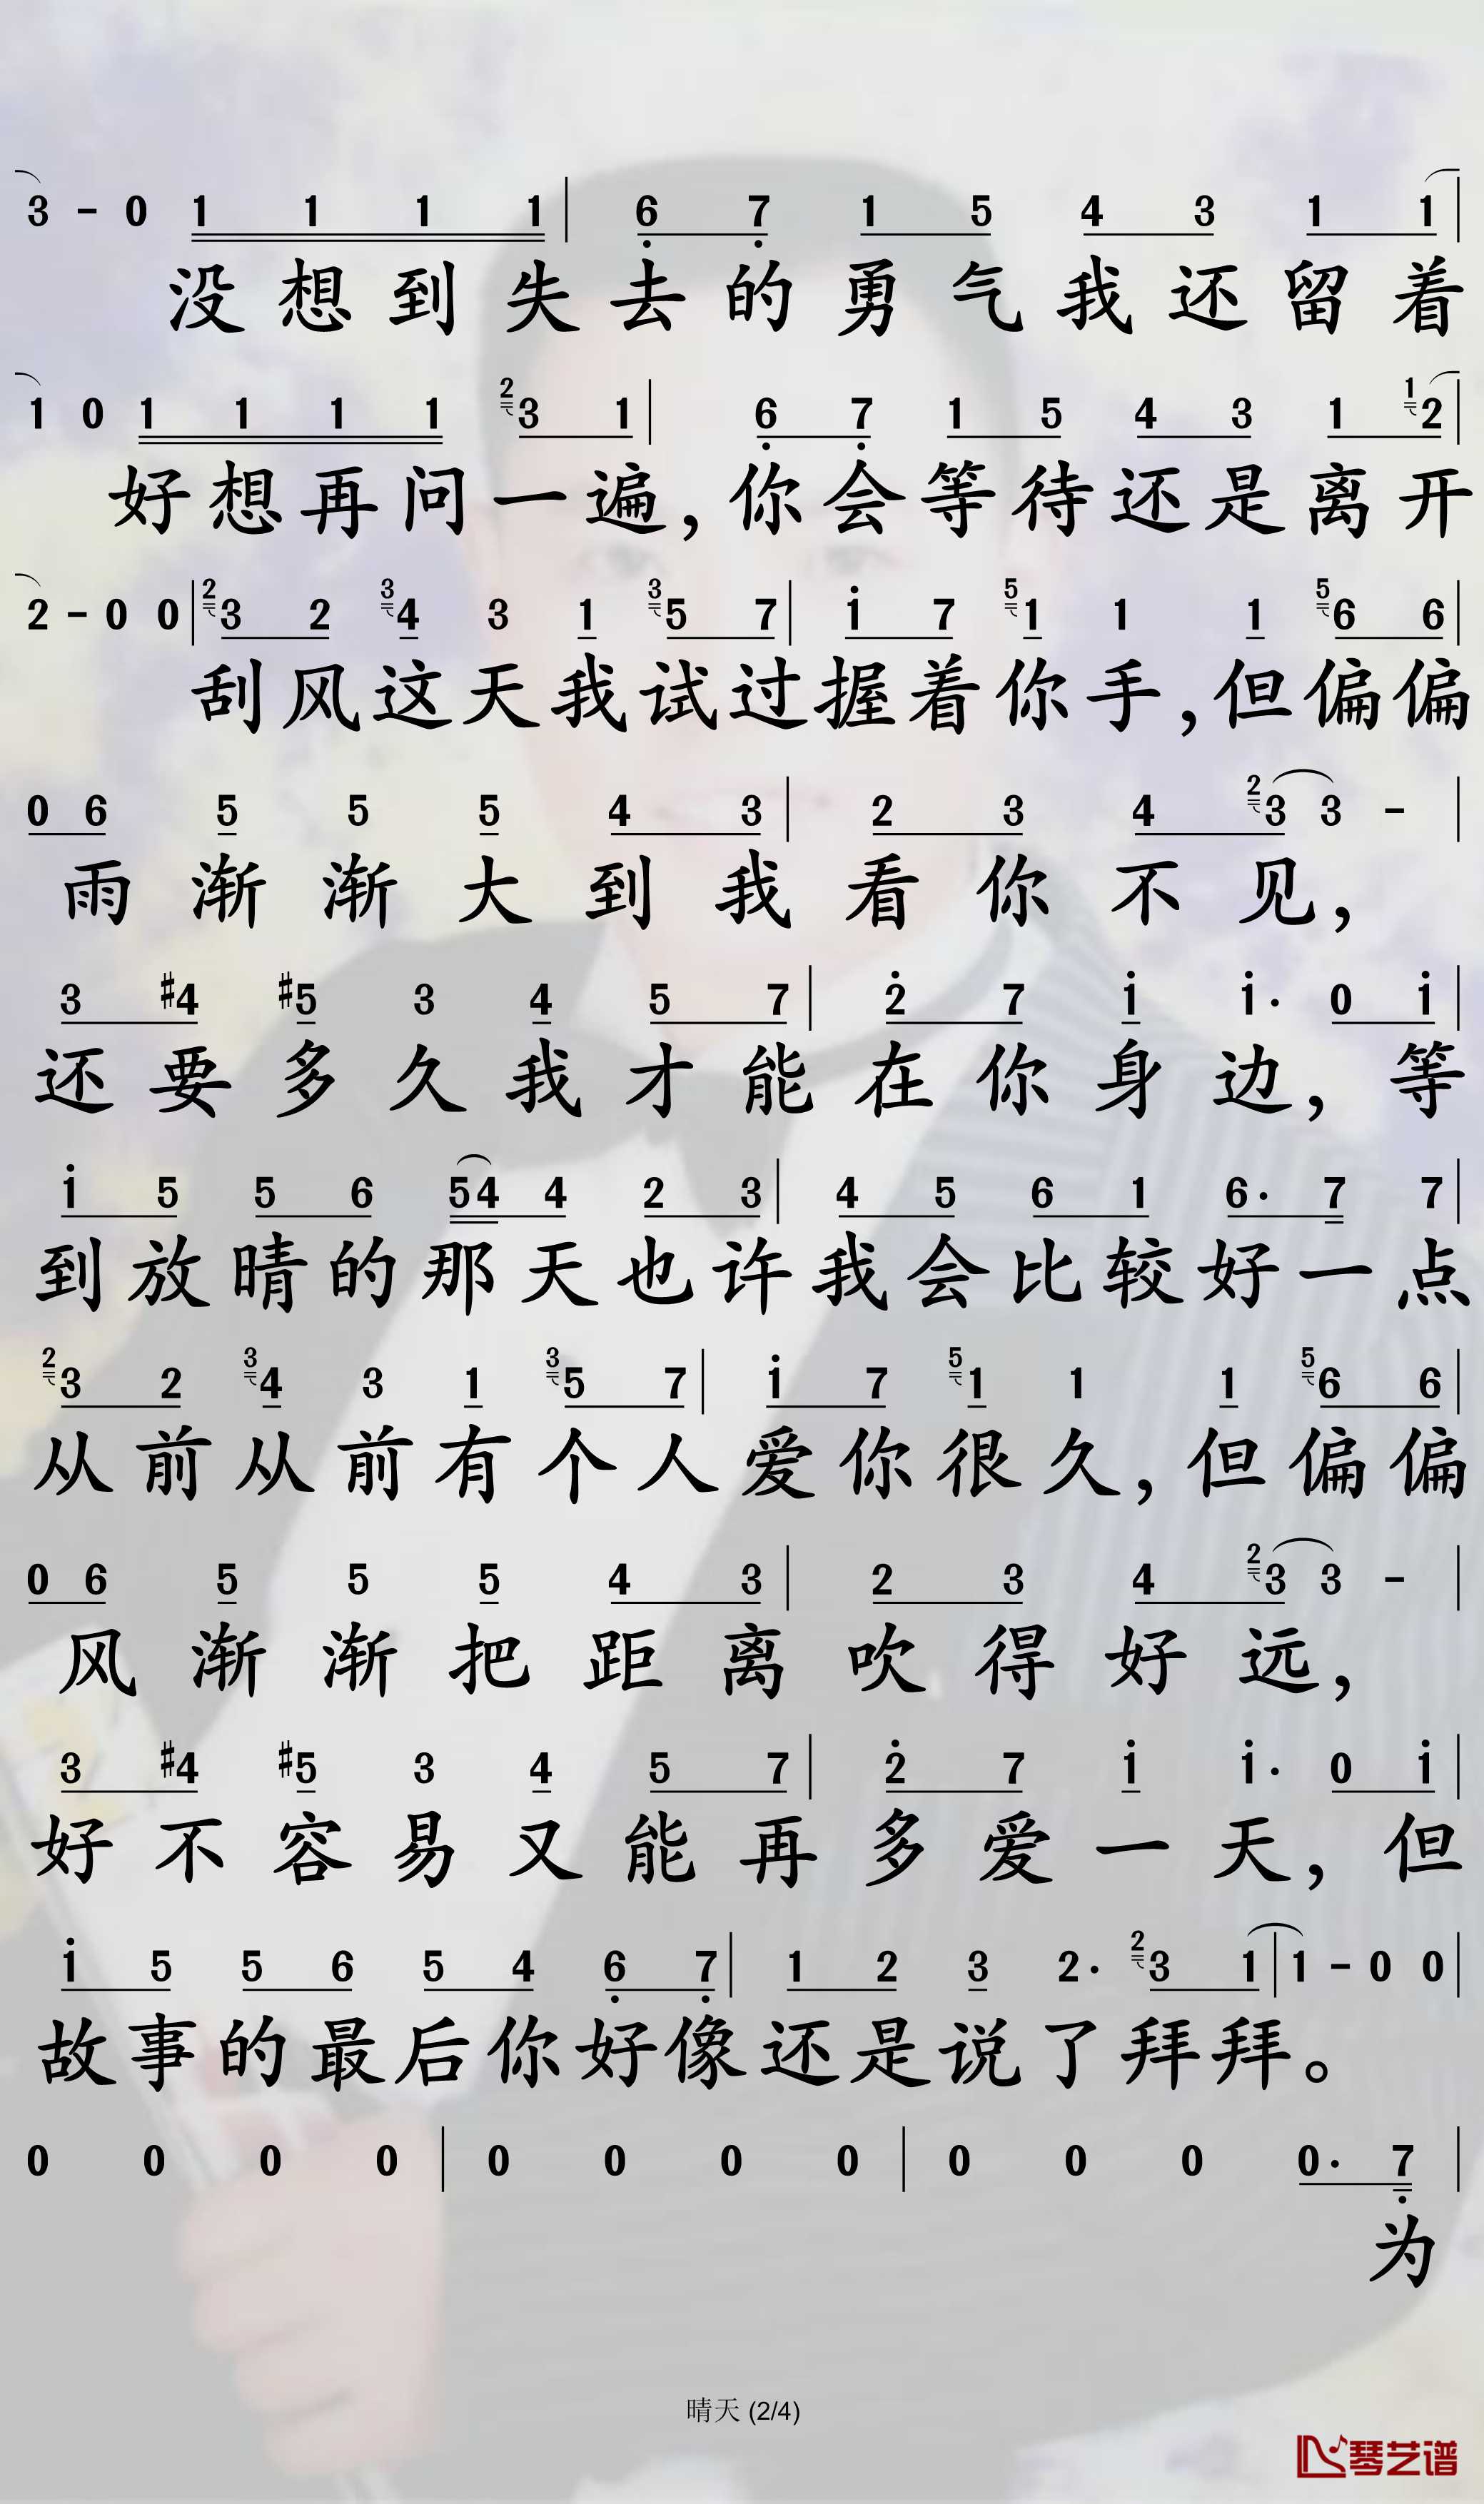 3 - 0 1 1 1 1 | 6 7 1 5 4 3 1 1 |
没想到失去的勇气我还留着
1 0 1 1 1 1 ²3 1 | 6 7 1 5 4 3 1 ¹2 |
好想再问一遍,你会等待还是离开
2 - 0 0 | ²3 2 ³4 3 1 ³5 7 | i 7 ⁵1 1 1 ⁵6 6 |
刮风这天我试过握着你手,但偏偏
0 6 5 5 5 4 3 | 2 3 4 ²3 3 - |
雨渐渐大到我看你不见,
3 #4 #5 3 4 5 7 | 2 7 i i· 0 i |
还要多久我才能在你身边,等
i 5 5 6 54 4 2 3 | 4 5 6 1 6· 7 7 |
到放晴的那天也许我会比较好一点
²3 2 ³4 3 1 ³5 7 | i 7 ⁵1 1 1 ⁵6 6 |
从前从前有个人爱你很久,但偏偏
0 6 5 5 5 4 3 | 2 3 4 ²3 3 - |
风渐渐把距离吹得好远,
3 #4 #5 3 4 5 7 | 2 7 i i· 0 i |
好不容易又能再多爱一天,但
i 5 5 6 5 4 6 7 | 1 2 3 2· ²3 1 | 1 - 0 0 |
故事的最后你好像还是说了拜拜。
0 0 0 0 | 0 0 0 0 | 0 0 0 0· 7 |
为
晴天 (2/4)
琴艺谱